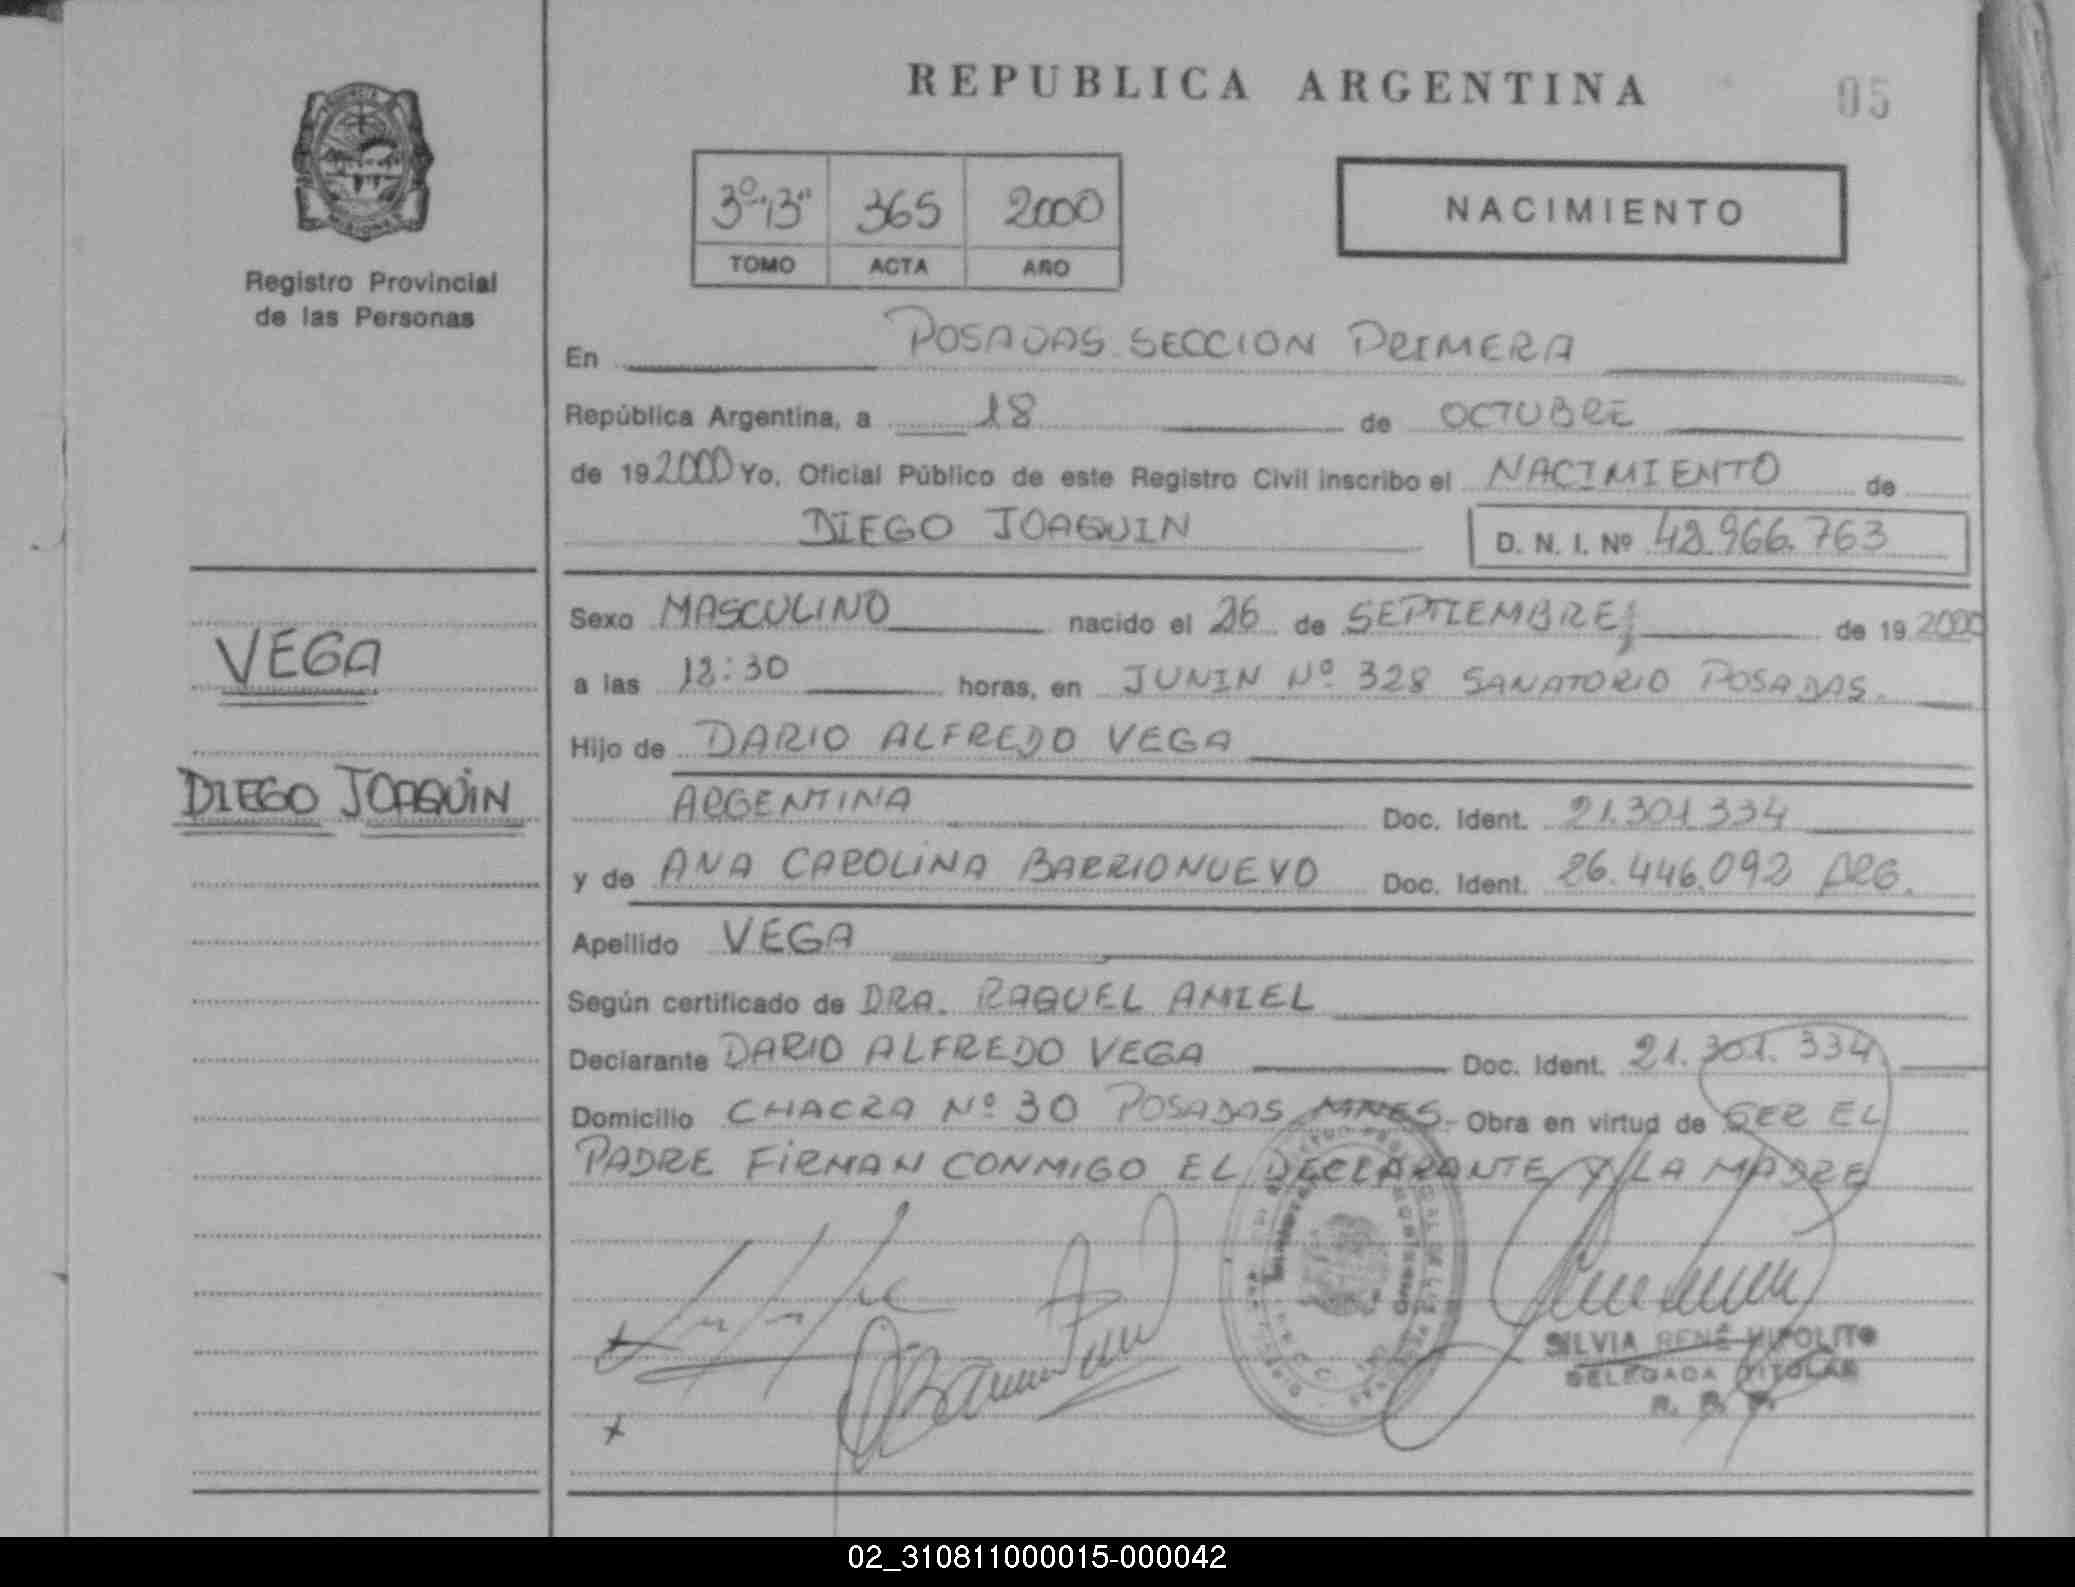 REPUBLICA ARGENTINA
05
3º"13" 365 2000
TOMO ACTA AÑO
NACIMIENTO
Registro Provincial
de las Personas
En POSADAS SECCION PRIMERA
República Argentina, a 18 de OCTUBRE
de 19 2000 Yo, Oficial Público de este Registro Civil inscribo el NACIMIENTO de
DIEGO JOAQUIN D. N. I. Nº 42.966.763
Sexo MASCULINO nacido el 26 de SEPTIEMBRE de 19 2000
VEGA
a las 12:30 horas, en JUNIN Nº 328 SANATORIO POSADAS.
Hijo de DARIO ALFREDO VEGA
DIEGO JOAQUIN
ARGENTINA Doc. Ident. 21.301.334
y de ANA CAROLINA BARRIONUEVO Doc. Ident. 26.446.092 ARG.
Apellido VEGA
Según certificado de DRA. RAQUEL AMIEL
Declarante DARIO ALFREDO VEGA Doc. Ident. 21.301.334
Domicilio CHACRA Nº 30 POSADAS MNES. Obra en virtud de SER EL
PADRE FIRMAN CONMIGO EL DECLARANTE Y LA MADRE
SILVIA RENÉ HIPOLITO
DELEGADA TITULAR
02_310811000015-000042